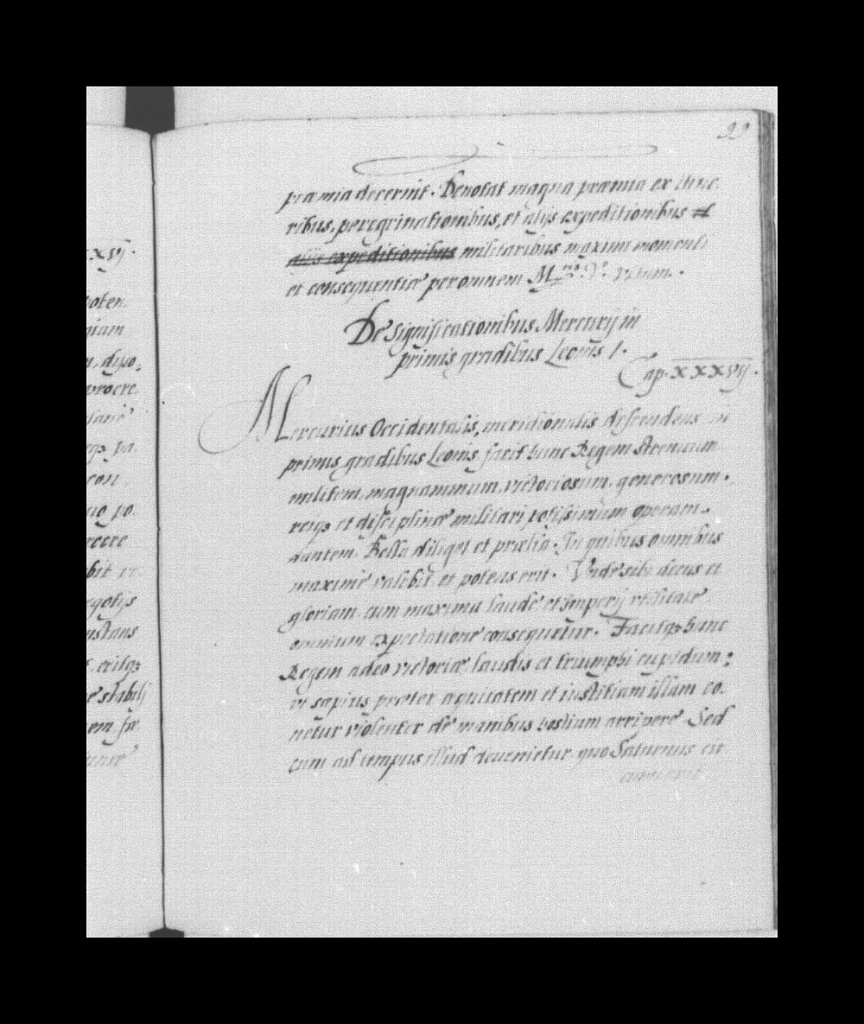 præmia decernit. Denotat magna præmia ex itine
ribus, peregrinationibus, et alijs expeditionibus et
alijs expeditionibus militaribus maximi momenti
et consequentiæ per omnem
De significationibus Mercurij in
primis gradibus Leonis 1.
Cap. XXXVIJ.
Mercurius Occidentalis, meridionalis descendens in
primis gradibus Leonis facit hunc Regem strenuum
militem, magnanimum, victoriosum, generosum.
reiqȝ et disciplinæ militari potissimum operam
dantem. Bella diliget et prælia. In quibus omnibus
maxime valebit et potens erit. Unde sibi decus et
gloriam cum maxima laude et imperij utilitate
omnium expectatione consequetur. Facitqȝ hunc
Regem adeo victoriæ laudis et triumphi cupidum:
ut sæpius præter æquitatem et iustitiam illam co
netur violenter de manibus hostium arripere. Sed
cum ad tempus illud devenietur quo Saturnus cir
xxvij.
poten
gium
diso,
procre
con
uo po
egotijs
nstans
critqȝ
stabilj
em fa